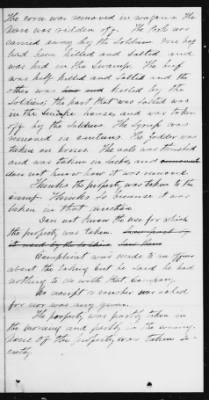 The corn was removed in wagons. The
horse was ridden off. The hogs was
carried away by the Soldiers. One hog
had been killed and salted and
was hid in the Swamp. The beef
was half killed and salted and the
other was killed by the
Soldiers; the part that was salted was
in the smoke house, and was taken
off by the Soldiers. The syrup was
removed in canteens. The fodder was
taken on horses. The oats was thrashed
and was taken in sacks, and
does not know how it was removed.
Thinks the property was taken to the
camp. Thinks so because it was
taken in that direction.
Does not know the use for which
the property was taken.
Complaint was made to an officer
about the taking but he said he had
nothing to do with that Company.
No receipt or voucher was asked
for nor was any given.
The property was partly taken in
the morning and partly in the evening.
None of the property was taken
secretly.